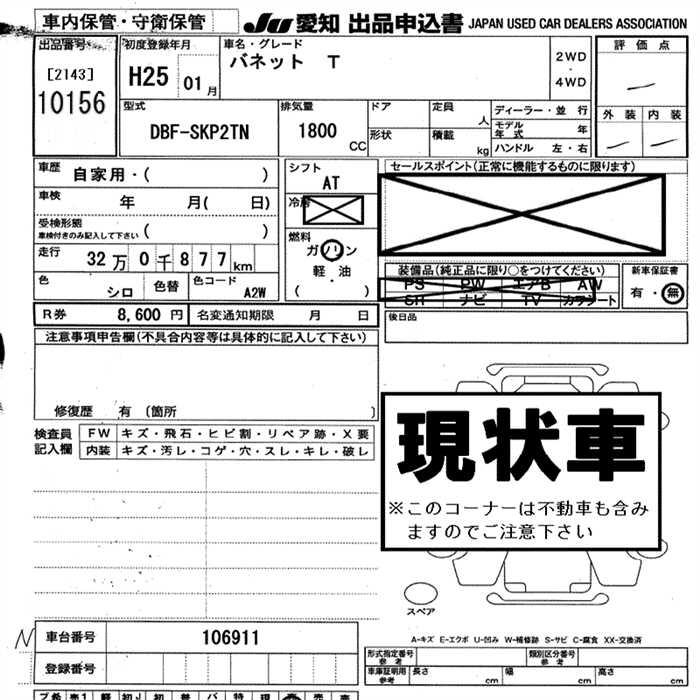 車内保管・守衛保管
JU 愛知 出品申込書 JAPAN USED CAR DEALERS ASSOCIATION
出品番号
[2143]
10156
初度登録年月
H25 01月
車名・グレード
バネット T
2WD
・
4WD
評価点
外装 内装
型式
DBF-SKP2TN
排気量
1800
CC
ドア
形状
定員
人
積載
kg
ディーラー・並行
モデル年式 年
ハンドル 左・右
車歴
自家用・( )
車検
年 月( 日)
受検形態
車検付きのみ記入して下さい ( )
走行
32万0千877km
色
シロ
色替
色コード
A2W
シフト
AT
冷房
燃料
ガソリン
軽・油
( )
セールスポイント(正常に機能するものに限ります)
装備品(純正品に限り○をつけてください)
PS PW エアB AW
SR ナビ TV カワシート
新車保証書
有・無
R券 8,600 円 名変通知期限 月 日
後日品
注意事項申告欄(不具合内容等は具体的に記入して下さい)
修復歴 有 〔箇所 〕
検査員記入欄
FW キズ・飛石・ヒビ割・リペア跡・X要
内装 キズ・汚レ・コゲ・穴・スレ・キレ・破レ
現状車
※このコーナーは不動車も含み
ますのでご注意下さい
スペア
A-キズ E-エクボ U-凹み W-補修跡 S-サビ C-腐食 XX-交換済
N
車台番号 106911
登録番号
形式指定番号
参考
類別区分番号
参考
車庫証明用
参考
長さ cm 幅 cm 高さ cm